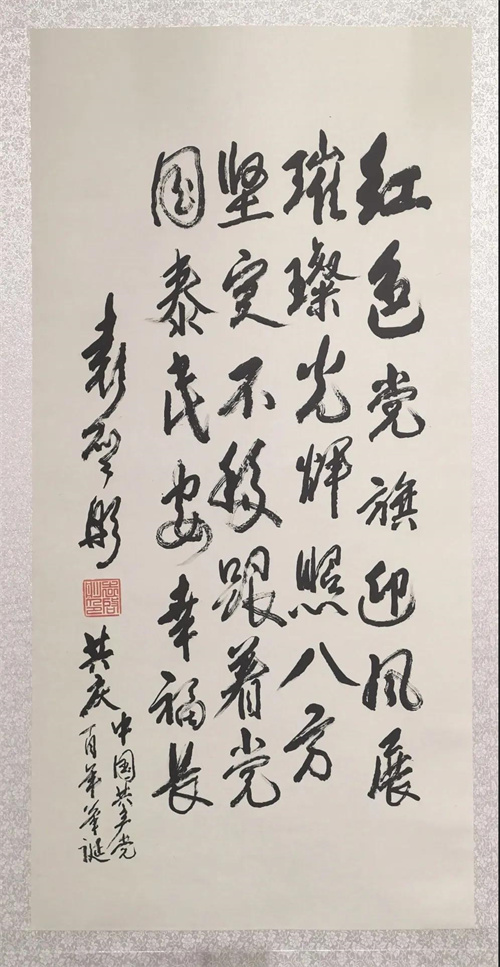 红色党旗迎风展
璀璨光辉照八方
坚定不移跟着党
国泰民安幸福长
袁启彤
共庆
中国共产党
百年华诞